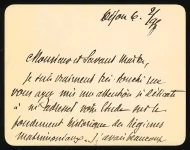 Dijon 6. 2/
Monsieur et Savant Maître,
Je suis vraiment très touché que
vous ayez mis une attention si délicate
à m'adresser votre Etude sur le
fondement historique des Régimes
matrimoniaux. J'avais beaucoup